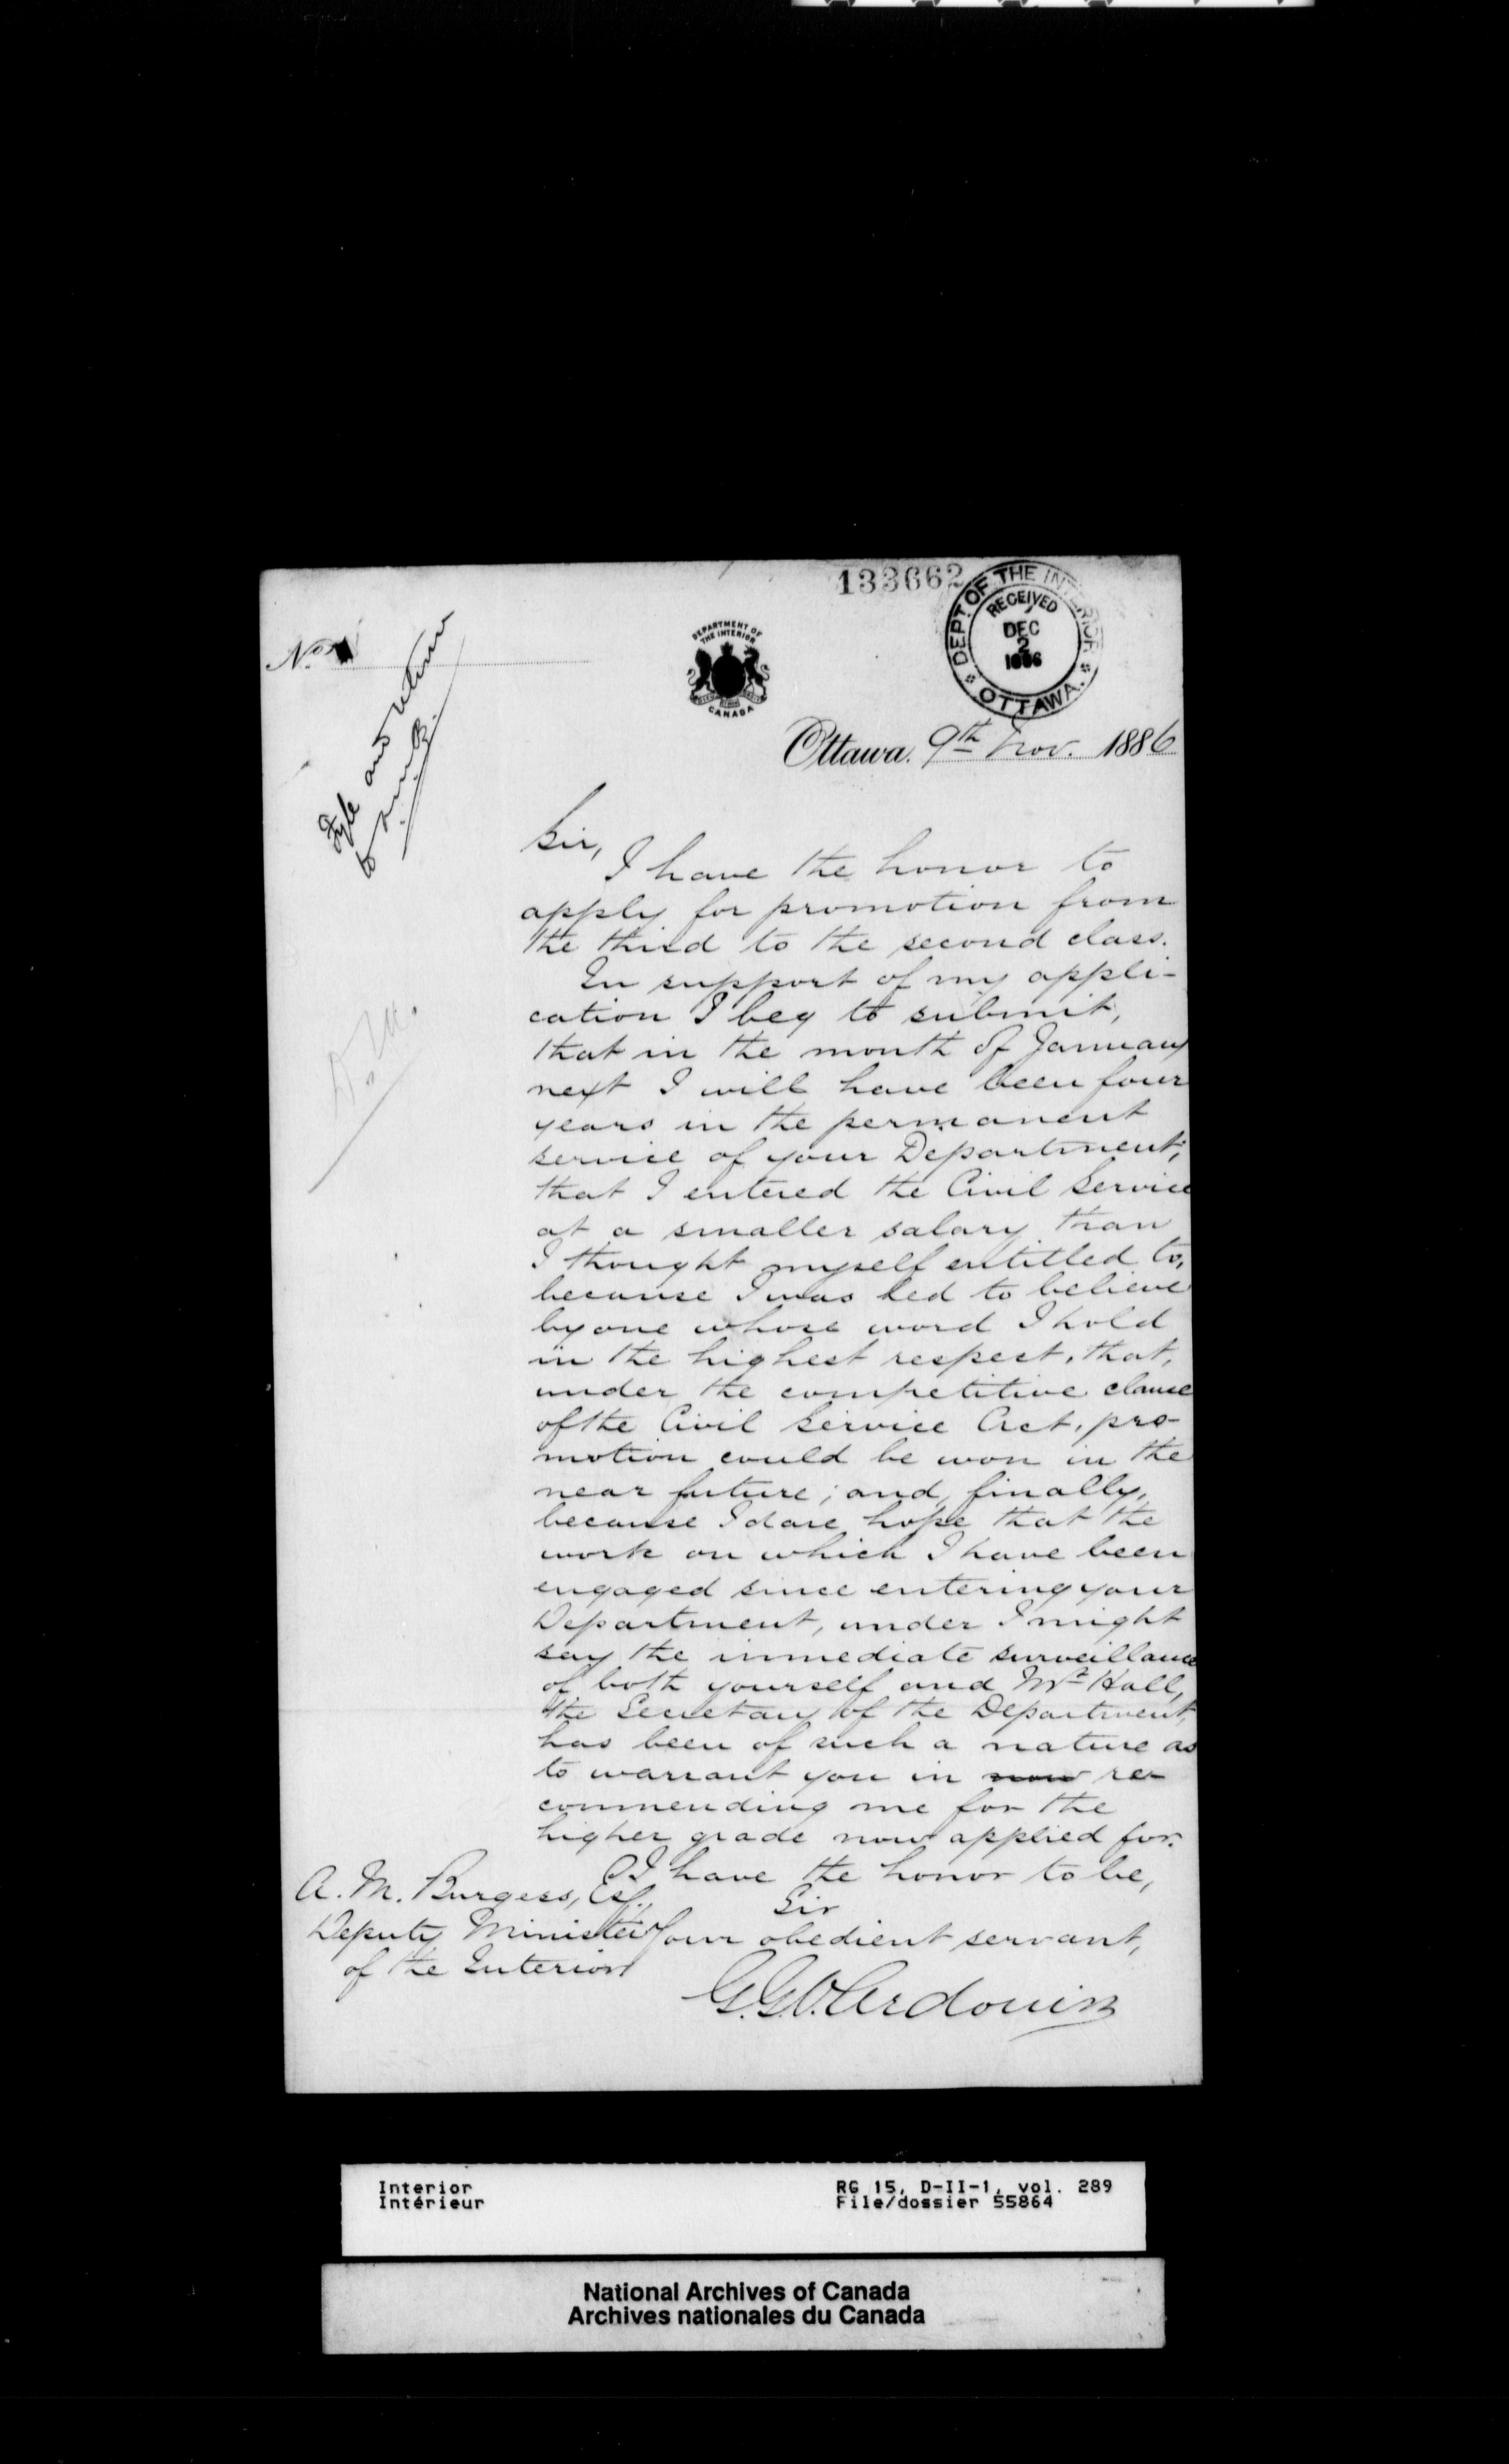 133662
DEPT. OF THE INTERIOR
RECEIVED
DEC
2
1886
OTTAWA.
No.
DEPARTMENT OF
THE INTERIOR
CANADA
Fyle and return
to
Ottawa. 9th Nov. 1886
Sir,
I have the honor to
apply for promotion from
the third to the second class.
In support of my appli-
cation I beg to submit,
that in the month of January
next I will have been four
years in the permanent
service of your Department;
that I entered the Civil Service
at a smaller salary than
I thought myself entitled to,
because I was led to believe
by one whose word I hold
in the highest respect, that,
under the competitive clause
of the Civil Service Act, pro-
motion could be won in the
near future; and, finally,
because I dare hope that the
work on which I have been
engaged since entering your
Department, under I might
say the immediate surveillance
of both yourself and Mr Hall,
the Secretary of the Department,
has been of such a nature as
to warrant you in now re-
commending me for the
higher grade now applied for.
I have the honor to be,
Sir
Your obedient servant,
G.G.V. Ardouin
A. M. Burgess, Esq.,
Deputy Minister
of the Interior
Interior
Intérieur
RG 15, D-II-1, vol. 289
File/dossier 55864
National Archives of Canada
Archives nationales du Canada